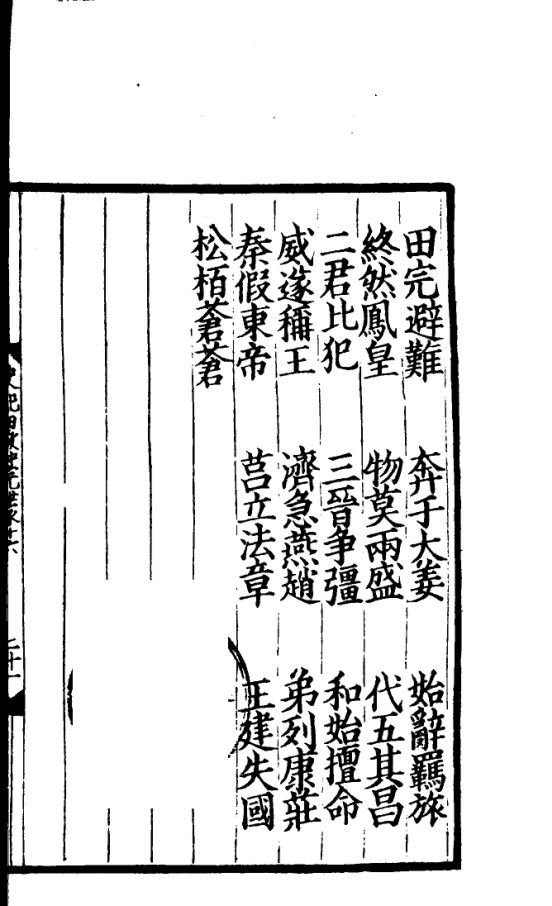 田完避難 奔于大姜 始辭羈旅
終然鳳皇 物莫兩盛 代五其昌
二君比犯 三晉争彊 和始擅命
威遂稱王 濟急燕趙 弟列康莊
秦假東帝 莒立法章 王建失國
松栢蒼蒼